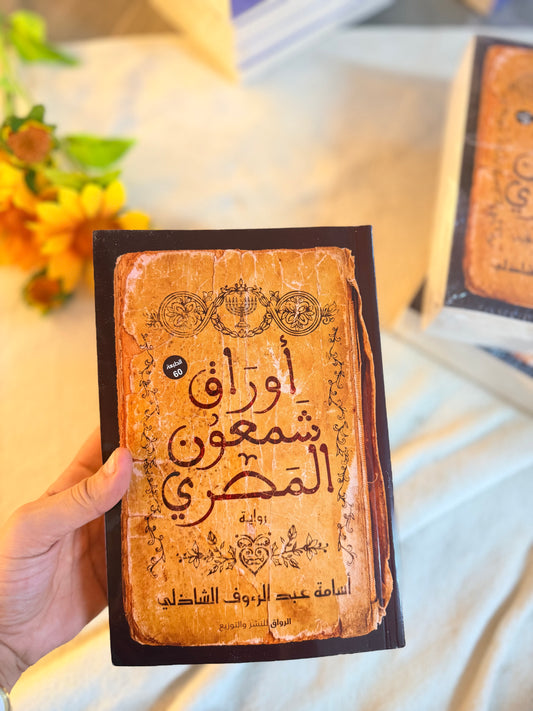 الطبعة
60
أوراق
شمعون
المصري
رواية
أسامة عبد الرءوف الشاذلي
الرواق للنشر والتوزيع